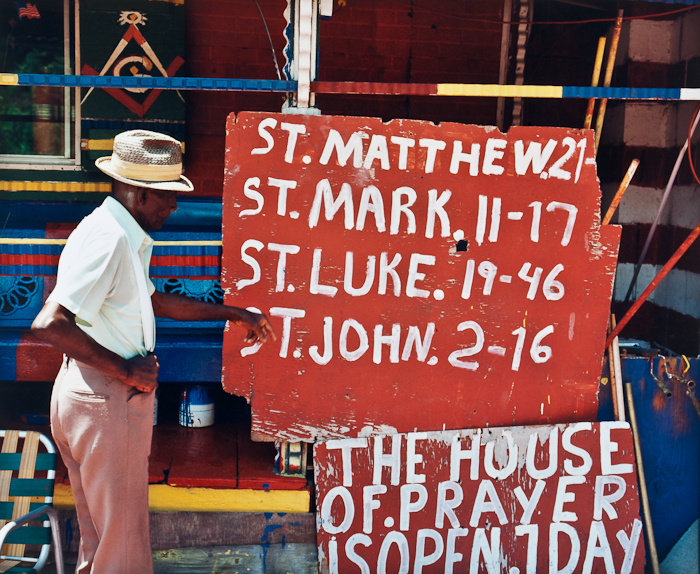 ST. MATTHEW. 21-
ST. MARK. 11-17
ST. LUKE. 19-46
ST. JOHN. 2-16
THE HOUSE
OF. PRAYER
IS OPEN. 7 DAY